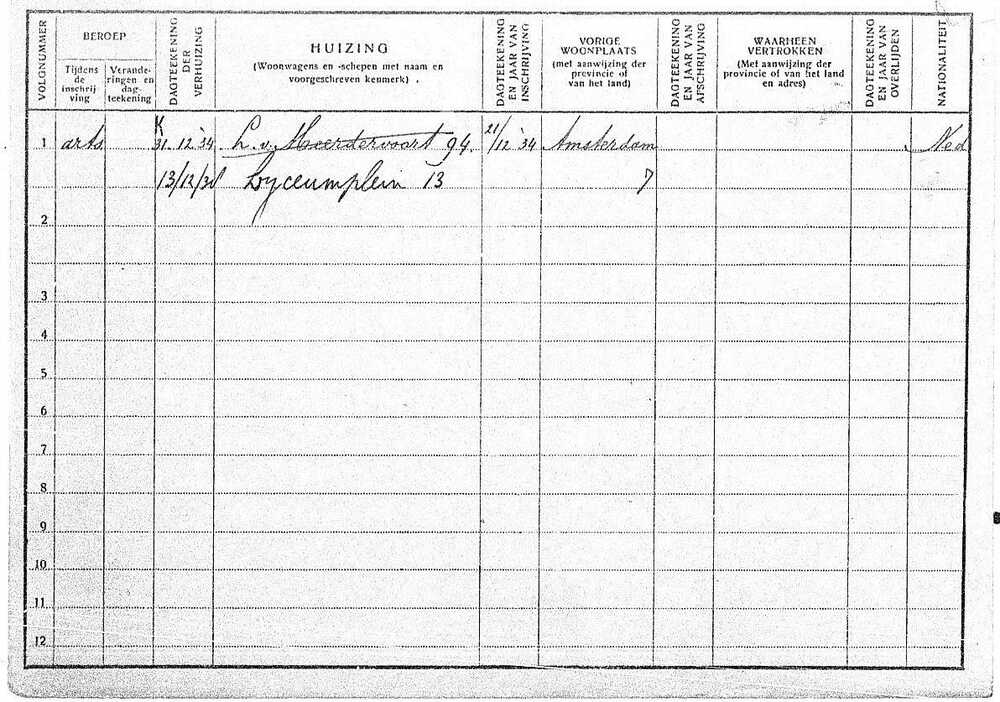 VOLGNUMMER
BEROEP
Tijdens de inschrij ving
Verande- ringen en dag- teekening
DAGTEEKENING DER VERHUIZING
HUIZING
(Woonwagens en -schepen met naam en
voorgeschreven kenmerk) .
DAGTEEKENING EN JAAR VAN INSCHRIJVING
VORIGE
WOONPLAATS
(met aanwijzing der
provincie of
van het land)
DAGTEEKENING EN JAAR VAN AFSCHRIJVING
WAARHEEN
VERTROKKEN
(Met aanwijzing der
provincie of van het land
en adres)
DAGTEEKENING EN JAAR VAN OVERLIJDEN
NATIONALITEIT
1 arts 31.12.'34 L. v. Meerdervoort 94. 21/12 '34 Amsterdam Ned
13/12/ Lyceumplein 13 7
2
3
4
5
6
7
8
9
10
11
12